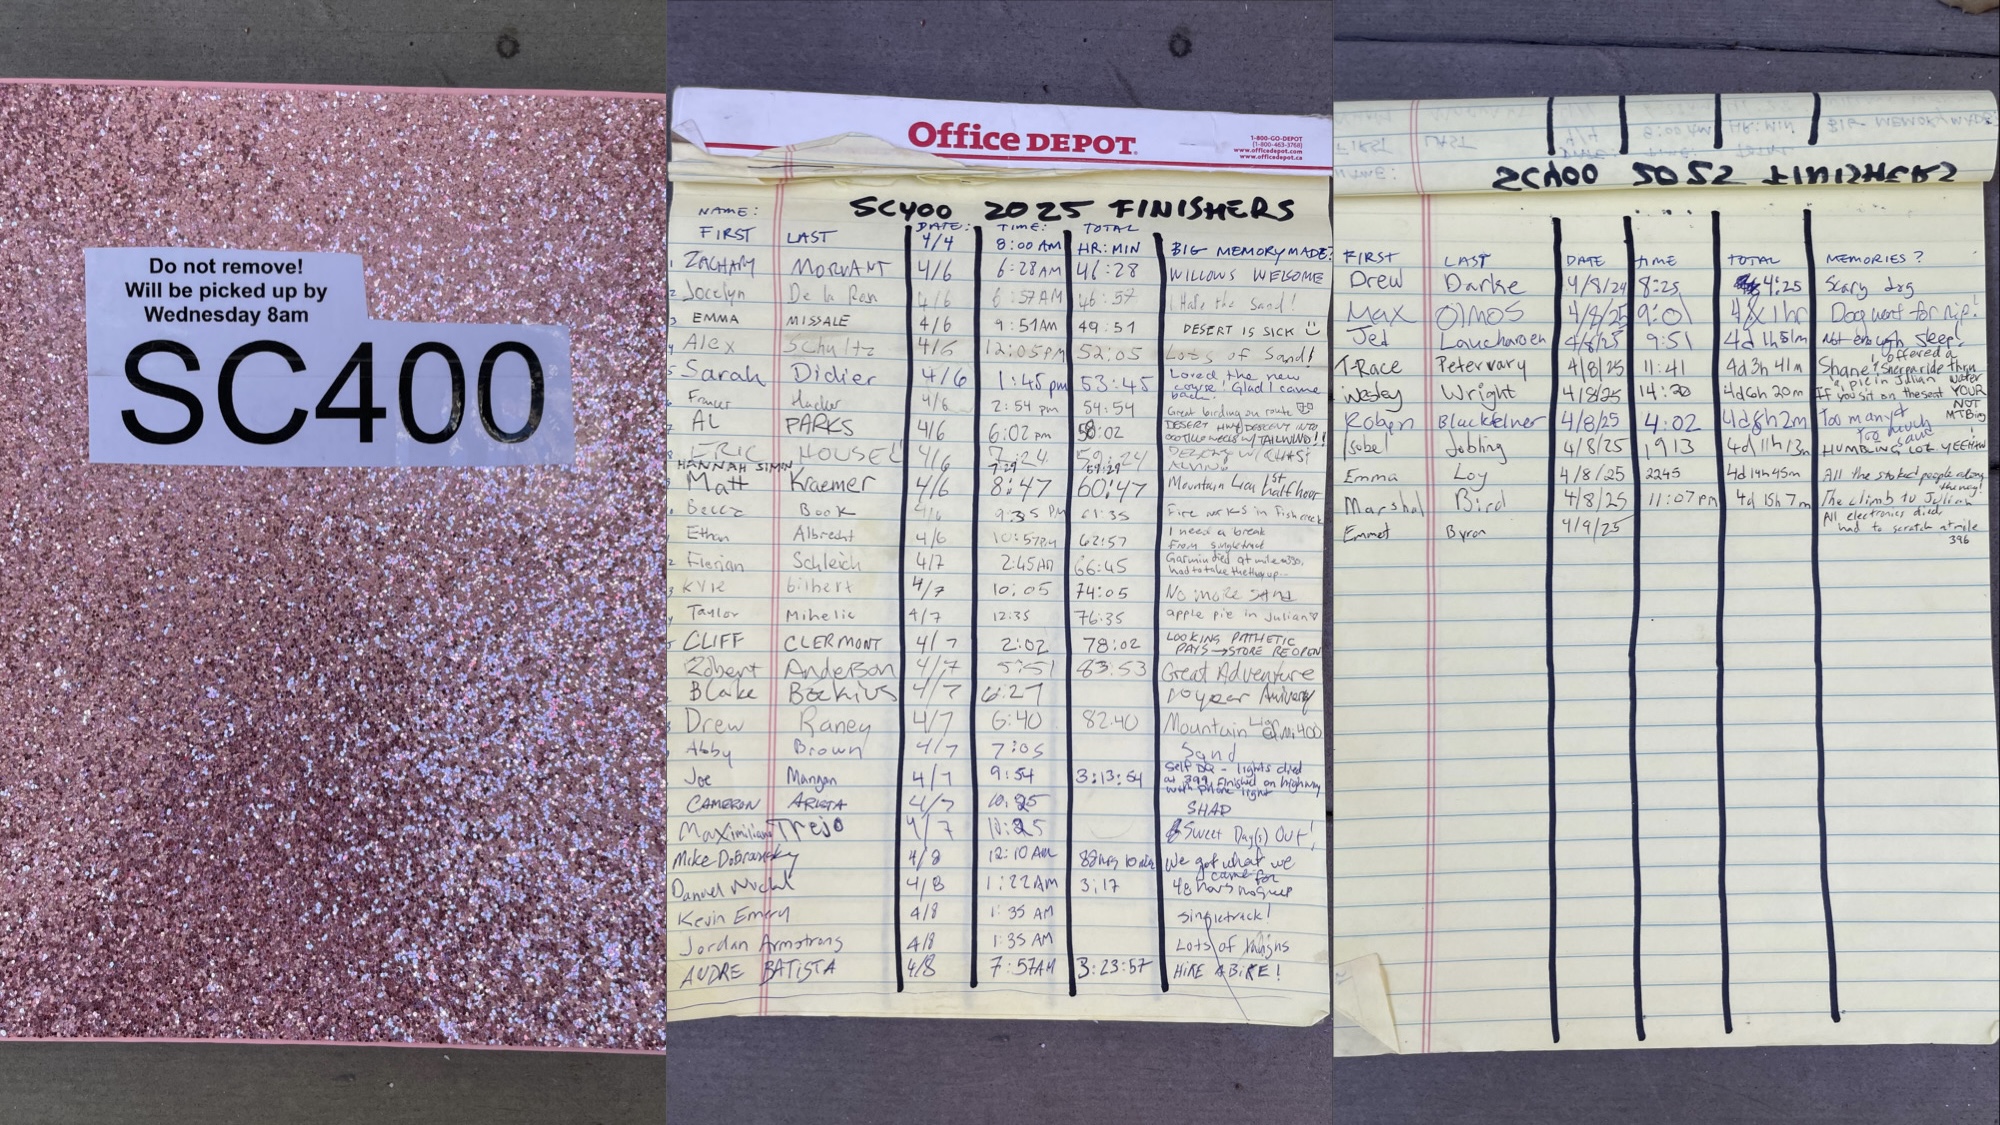 Do not remove!
Will be picked up by
Wednesday 8am
SC400
Office DEPOT
1-800-GO-DEPOT
(1-800-463-3768)
www.officedepot.com
www.officedepot.ca
SC400 2025 FINISHERS
NAME: DATE: TIME: TOTAL
FIRST LAST 4/4 8:00 AM HR:MIN BIG MEMORY MADE?
ZACHARY MORVANT 4/6 6:28 AM 46:28 WILLOWS WELCOME
Jocelyn De la Rosa 4/6 6:57AM 46:57 I Hate the Sand!
EMMA MISSALE 4/6 9:51AM 49:51 DESERT IS SICK
Alex Schultz 4/6 12:05PM 52:05 Lots of Sand!
Sarah Didier 4/6 1:45pm 53:45 Loved the new course! Glad I came back.
4/6 2:54 pm 54:54 Great birding on route
AL PARKS 4/6 6:02pm 58:02 DESERT HWY DESCENT INTO W/ TAILWIND!!
ERIC HOUSE! 4/6 7:24 59:24
HANNAH SIMON 7:29 59:29
Matt Kraemer 4/6 8:47 60:47 Mountain Lion 1st half hour
Becca Book 4/6 9:35 PM 61:35 Fire works in Fish creek
Ethan Albrecht 4/6 10:57PM 62:57 I need a break from singletrack
Florian Schleich 4/7 2:45AM 66:45 Garmin died at mile had to take the hwy up...
Kyle Gilbert 4/7 10:05 74:05 No more sand
Taylor Mihelic 4/7 12:35 76:35 apple pie in Julian
CLIFF CLERMONT 4/7 2:02 78:02 LOOKING PATHETIC PAYS → STORE REOPEN
Robert Anderson 4/7 5:51 83:53 Great Adventure
Blake Bockius 4/7 6:27 10 year
Drew Raney 4/7 6:40 82:40 Mountain Lion @ mi 400
Abby Brown 4/7 7:05 Sand
Joe Mangan 4/7 9:54 3:13:54 Self DQ - lights died at 399, finished on highway with phone light
CAMERON 4/7 10:25
Maximiliano Trejo 4/7 10:25 Sweet Day(s) Out!
Mike Dobransky 4/8 12:10 AM 88hrs 10 min We got what we came for
4/8 1:22AM 3:17 48 hours
Kevin Emery 4/8 1:35 AM Singletrack!
Jordan Armstrong 4/8 1:35 AM Lots of
AUDRE BATISTA 4/8 7:57AM 3:23:57 HIKE A BIKE!
SC400 2025 FINISHERS
FIRST LAST DATE TIME TOTAL MEMORIES?
Drew Darke 4/8/24 8:25 4:25 Scary dog
Max Olmos 4/8/25 9:01 4d 1hr Dog went for nip!
Jed 4/8/25 9:51 4d 1h 51m not enough sleep!
T-Race Petervary 4/8/25 11:41 4d 3h 41m Shane offered a Sherpa ride thru
Wesley Wright 4/8/25 14:20 4d 6h 20m If you sit on the seat YOUR NOT MTBing
Robyn 4/8/25 4:02 4d 8h 2m Too many & too much sand
Isobel Jobling 4/8/25 1913 4d 11h 13m HUMBLING LOL YEEHAW
Emma Loy 4/8/25 2245 4d 14h 45m All the stoked people along the way!
Marshal Bird 4/8/25 11:07 pm 4d 15h 7m The climb to Julian
Emmet Byron 4/9/25 All electronics died, had to scratch at mile 396